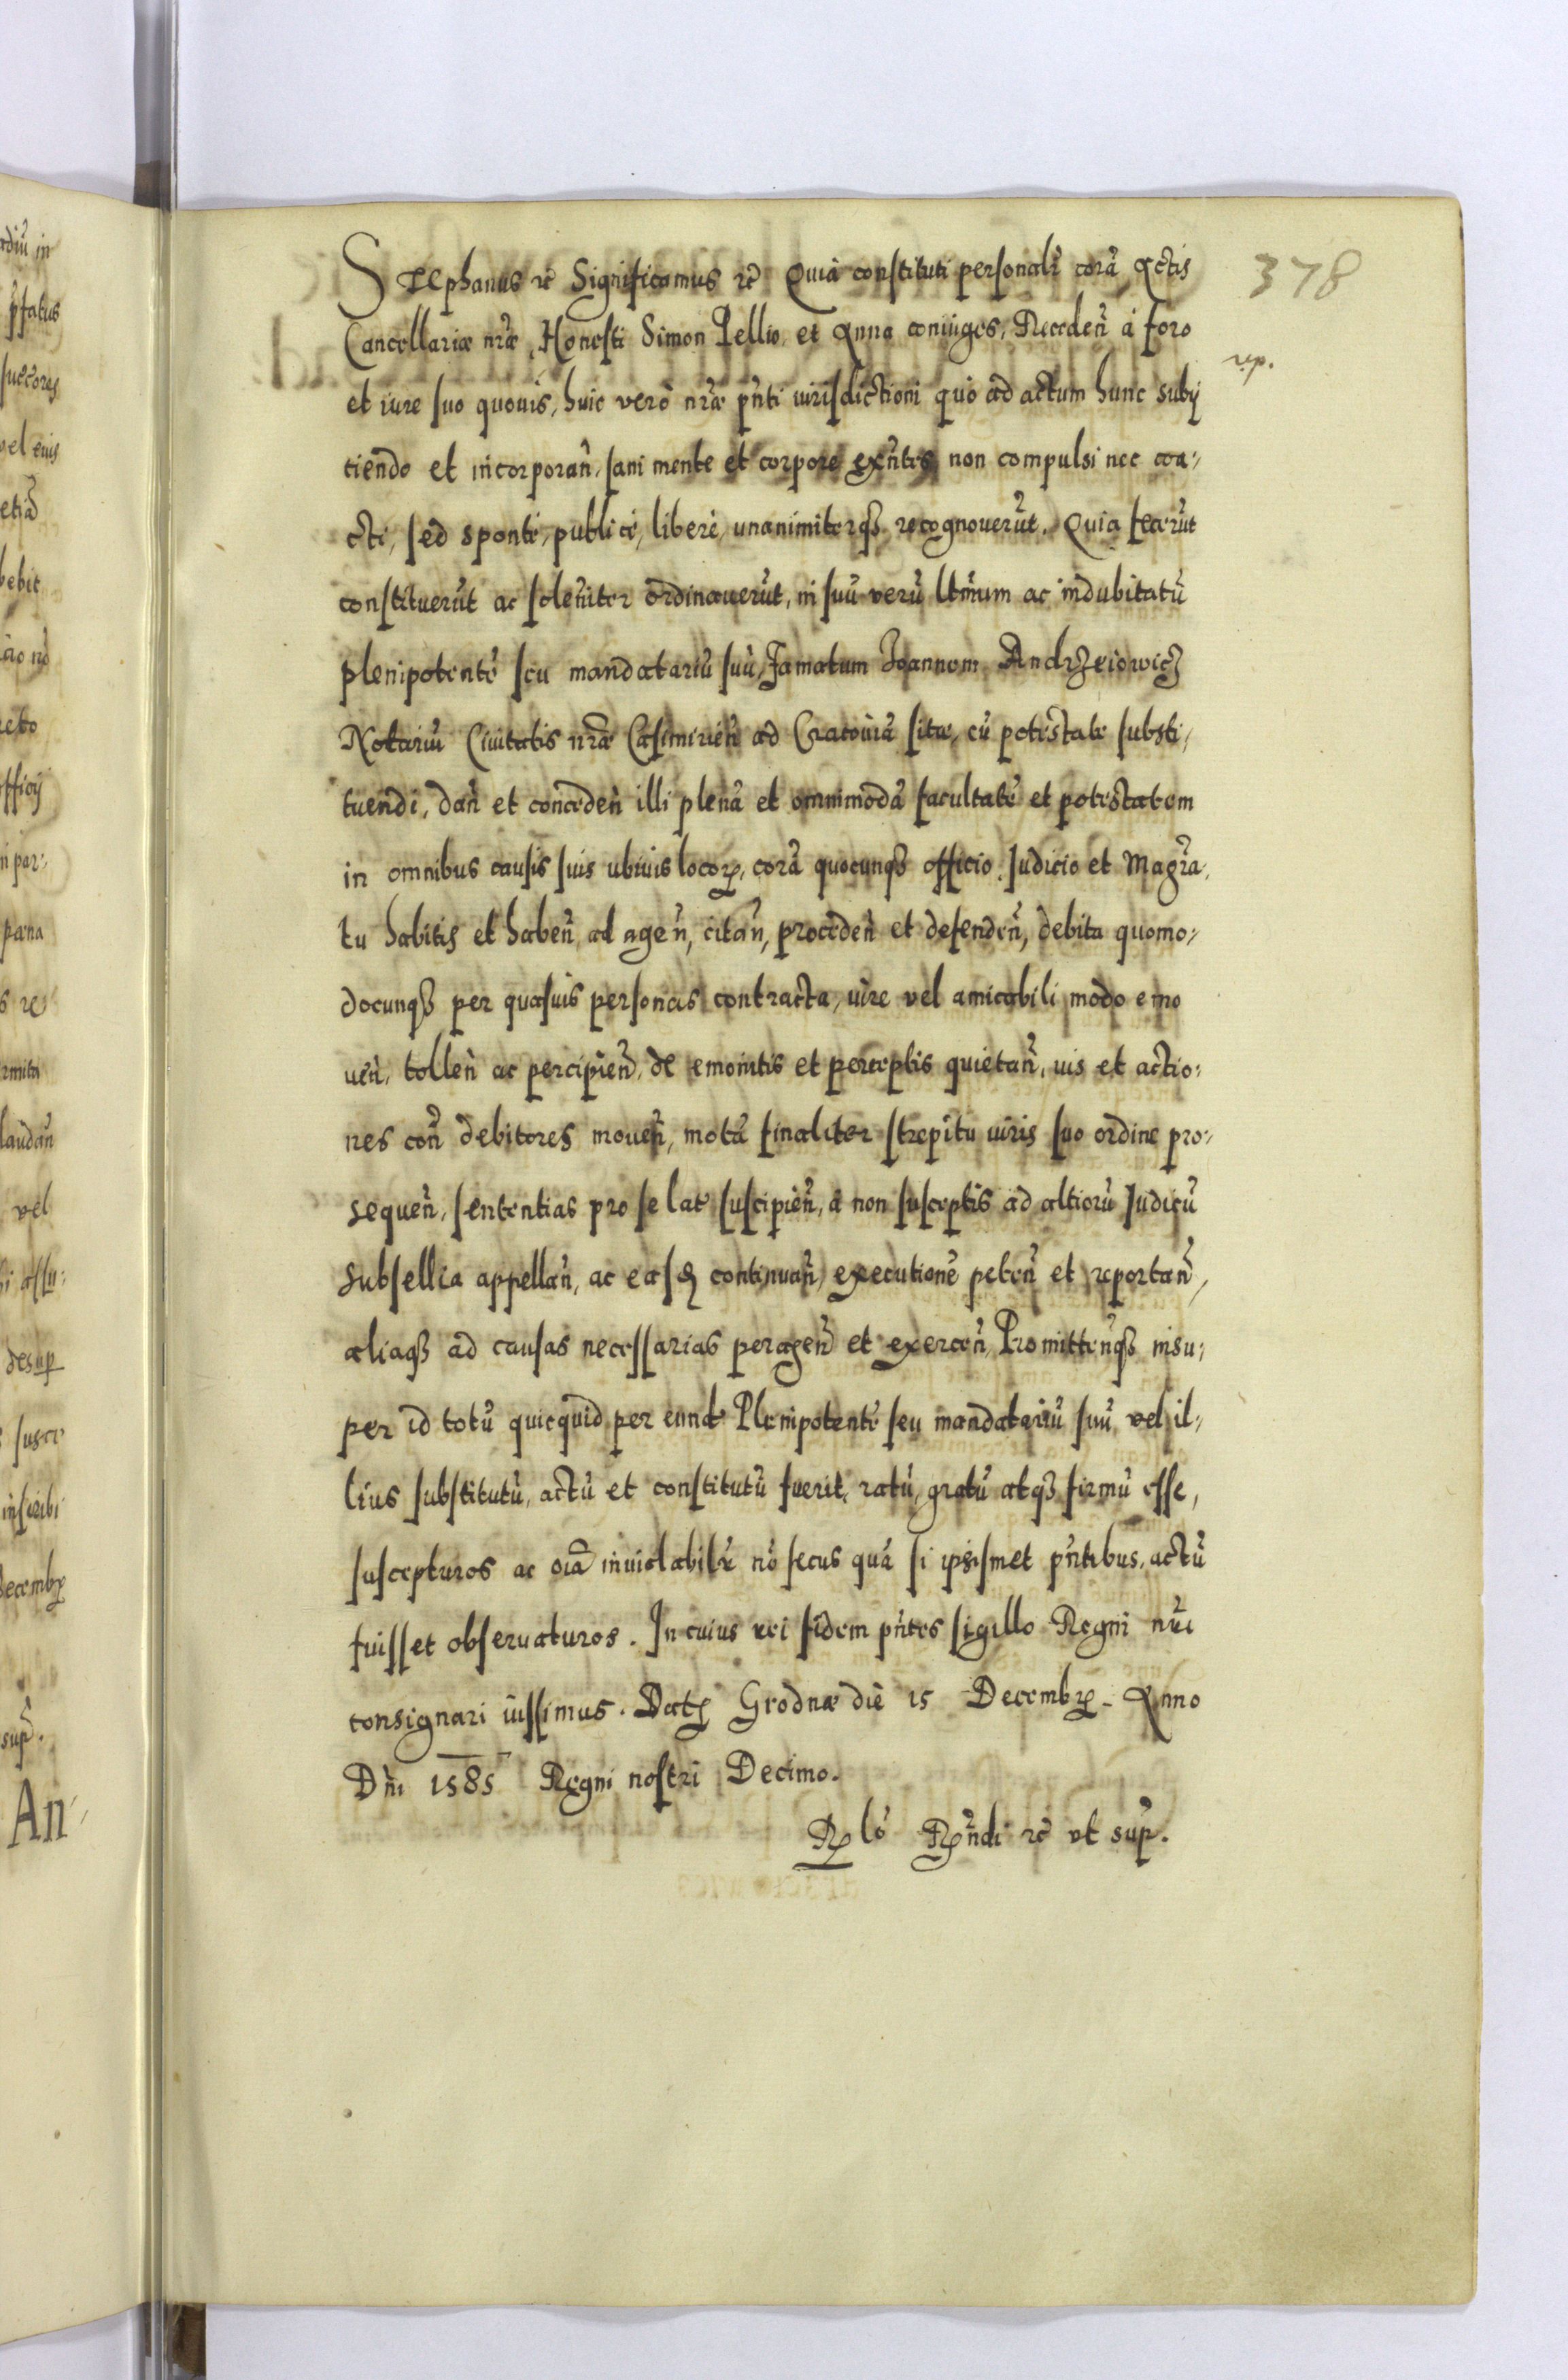 378
Stephanus rc̃ Significamus rc̃ Quia constituti personalr̃ corã Actis
Cancellariæ nr̃æ, Honesti Simon Pellio, et Anna coniuges, Receden̄ à foro
r.p.
et iure suo quouis, huic verò nr̃æ pn̄ti iurisdictioni quò ad actum hunc subij
ciendo et incorporan̄, sani mente et corpore exn̄tes non compulsi nec coa-
cti, sed spontè, publicè, liberè, unanimiterqꝫ recognouerūt. Quia fecerūt
constituerūt ac solen̄iter ordinauerūt, in suū verū ltimum ac indubitatū
plenipotentē seu mandatariū suū, Famatum Joannem Andrzeiowicz
Notariū Ciuitatis nr̃æ Casimirien̄ ad Cracouiā sitæ, cū potestate substi-
tuendi, dan̄ et conceden̄ illi plenā et omnimodā facultatē et potestatem
in omnibus causis suis ubiuis locoꝝ, corā quocunqꝫ officio, Iudicio et Magr̃a-
tu habitis et haben̄, ad agen̄, citan̄, proceden̄ et defenden̄, debita quomo-
docunqꝫ per quasuis personas contracta, iure vel amicabili modo emo
uen̄, tollen̄ ac percipien̄, de emonitis et perceptis quietan̄, ius et actio-
nes con̄ debitores mouen̄, motā finaliter strepitu iuris suo ordine pro-
sequen̄, sententias pro se lat suscipien̄, à non susceptis ad altiorū Iudicū
subsellia appellan̄, ac easdē continuan̄, executionē peten̄ et reportan̄,
aliaqꝫ ad causas necessarias peragen̄ et exercen̄, Promitten̄qꝫ insu-
per id totū quicquid per eund Plenipotentē seu mandatariū suū vel il-
lius substitutū, actū et constitutū fuerit, ratū, gratū atqꝫ firmū esse,
suscepturos ac oiā inuiolabilr̃ nō secus quā si ipsismet pn̄tibus, actū
fuisset obseruaturos. In cuius rei fidem pn̄tes sigillo Regni nr̃i
consignari iussimus. Datꝫ Grodnæ die 15 Decembꝝ. Anno
Dn̄i 1585 Regni nostri Decimo.
Rꝫlō Rn̄di rc̃ vt sup̄.